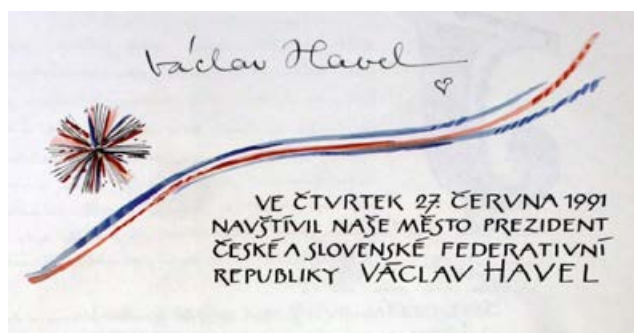 Václav Havel
VE ČTVRTEK 27. ČERVNA 1991
NAVŠTÍVIL NAŠE MĚSTO PREZIDENT
ČESKÉ A SLOVENSKÉ FEDERATIVNÍ
REPUBLIKY VÁCLAV HAVEL